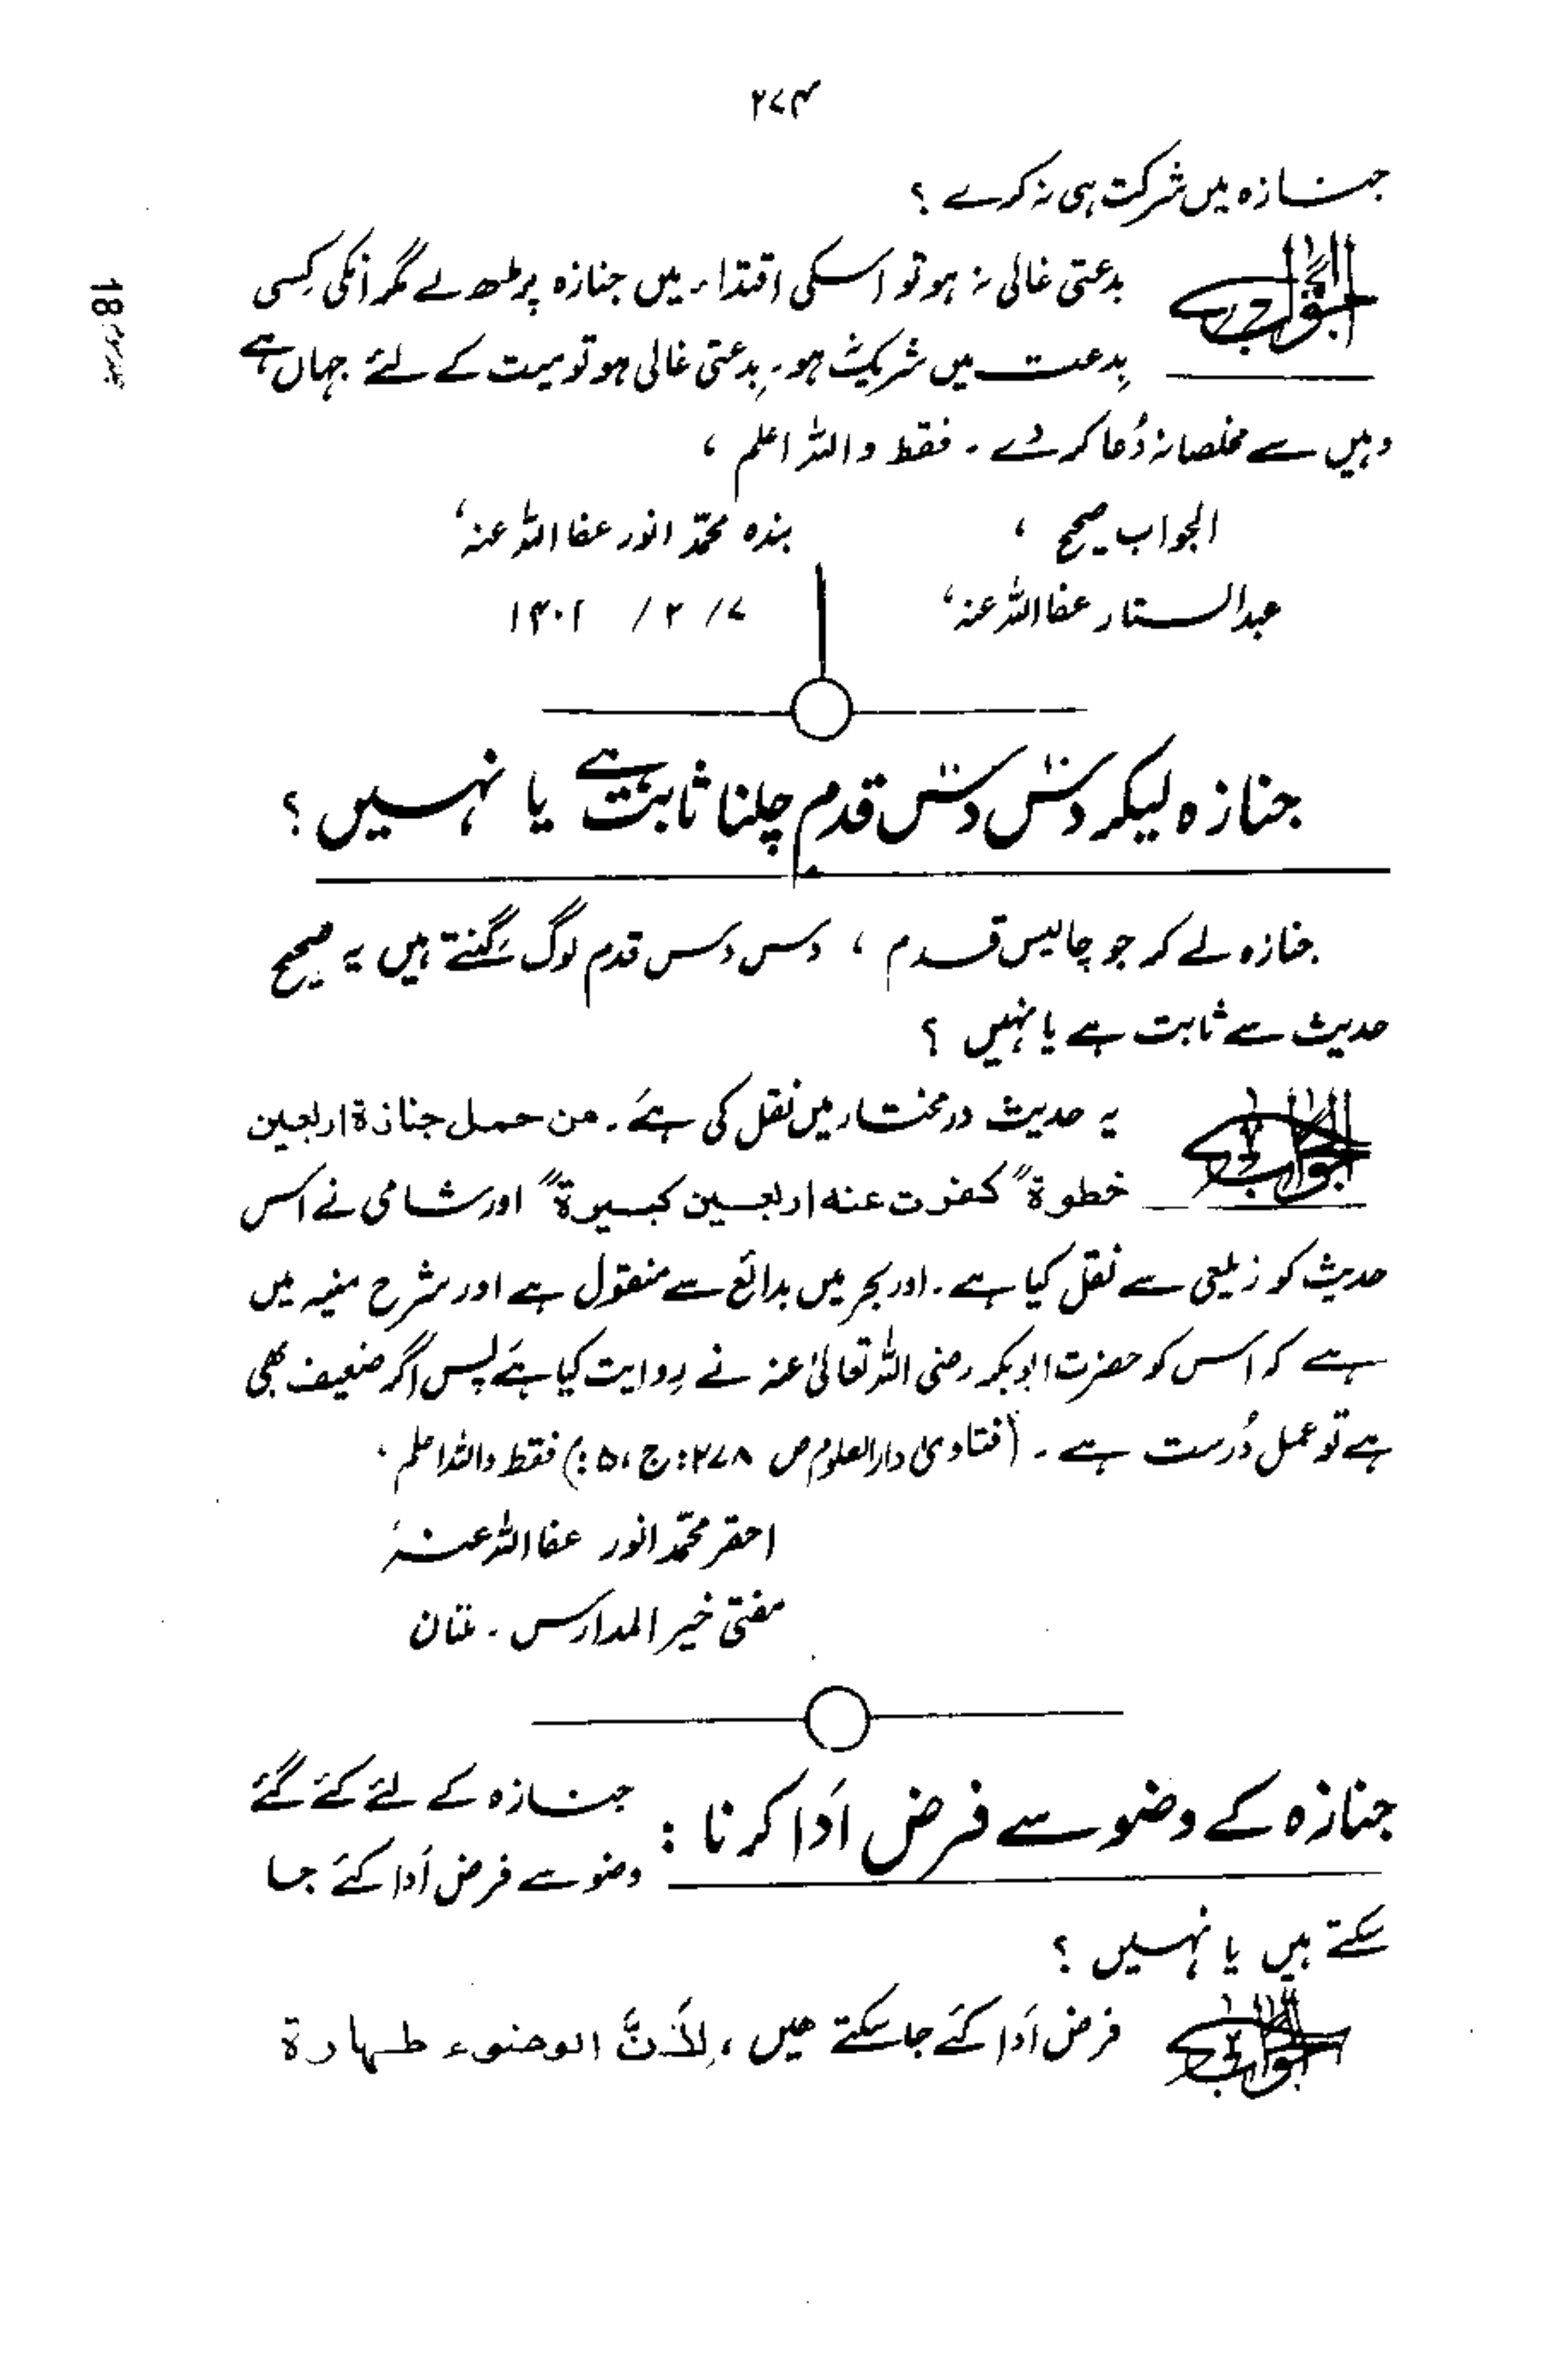 ۲۷۴
جنازہ میں شرکت ہی نہ کرے ؟
الجواب بدعتی غالی نہ ہو تو اسکی اقتداء میں جنازہ پڑھ لے مگر انکی کسی
بدعت میں شریک نہ ہو۔ بدعتی غالی ہو تو میت کے لئے جہاں ہے
وہیں سے مخلصانہ دُعا کر دے ۔ فقط واللہ اعلم ،
الجواب صحیح ، بندہ محمّد انور عفا اللہ عنہ ،
عبد الستار عفا اللہ عنہ ، ۷/ ۲ / ۱۴۰۲
جنازہ لیکر دس دس قدم چلنا ثابت ہے یا نہیں ؟
جنازہ لے کر جو چالیس قدم ، دس دس قدم لوگ گنتے ہیں یہ صحیح
حدیث سے ثابت ہے یا نہیں ؟
الجواب یہ حدیث درمختار میں نقل کی ہے ۔ من حمل جنازة اربعین
خطوة ً کفرت عنه اربعین کبیرة ً اور شامی نے اس
حدیث کو زیلعی سے نقل کیا ہے ۔ اور بحر میں بدائع سے منقول ہے اور شرح منیہ میں
ہے کہ اس کو حضرت ابوبکر رضی اللہ تعالیٰ عنہ نے روایت کیا ہے پس اگر ضعیف بھی
ہے تو عمل دُرست ہے ۔ (فتاویٰ دارالعلوم ص ۲۷۸ : ج ، ۵ :) فقط واللہ اعلم ،
احقر محمّد انور عفا اللہ عنہٗ
مفتی خیر المدارس ۔ ملتان
جنازہ کے وضو سے فرض اَدا کرنا : جنازہ کے لئے کئے گئے
وضو سے فرض اَدا کئے جا
سکتے ہیں یا نہیں ؟
الجواب فرض اَدا کئے جا سکتے ہیں ، لِاَنَّ الوضوء طهارة